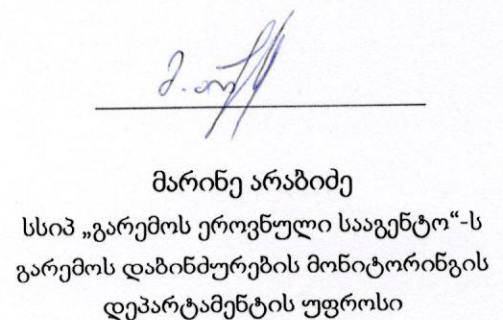 მარინე არაბიძე
სსიპ „გარემოს ეროვნული სააგენტო“-ს
გარემოს დაბინძურების მონიტორინგის
დეპარტამენტის უფროსი